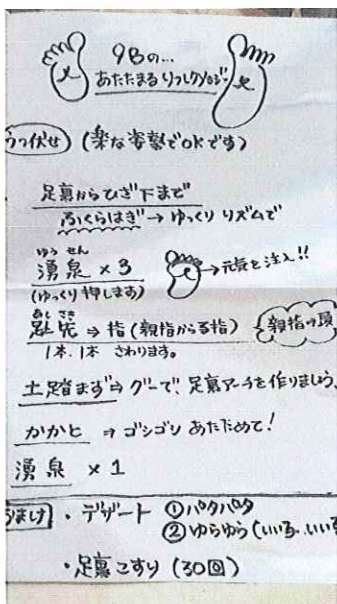 9Bの…
あたたまるリフレクソロジー
うつ伏せ) (楽な姿勢でOKです)
足裏からひざ下まで
ふくらはぎ → ゆっくり リズムで
ゆう せん
湧泉 × 3 → 元気を注入!!
(ゆっくり押します)
あし さき
趾先 ⇒ 指 (親指から各指) 親指の頭
1本、1本 さわります。
土踏まず ⇒ グーで、足裏アーチを作りましょう、
かかと ⇒ ゴシゴシ あたためて!
湧泉 × 1
おまけ ・デザート ① パタパタ
② ゆらゆら (いい
・足裏こすり (30回)